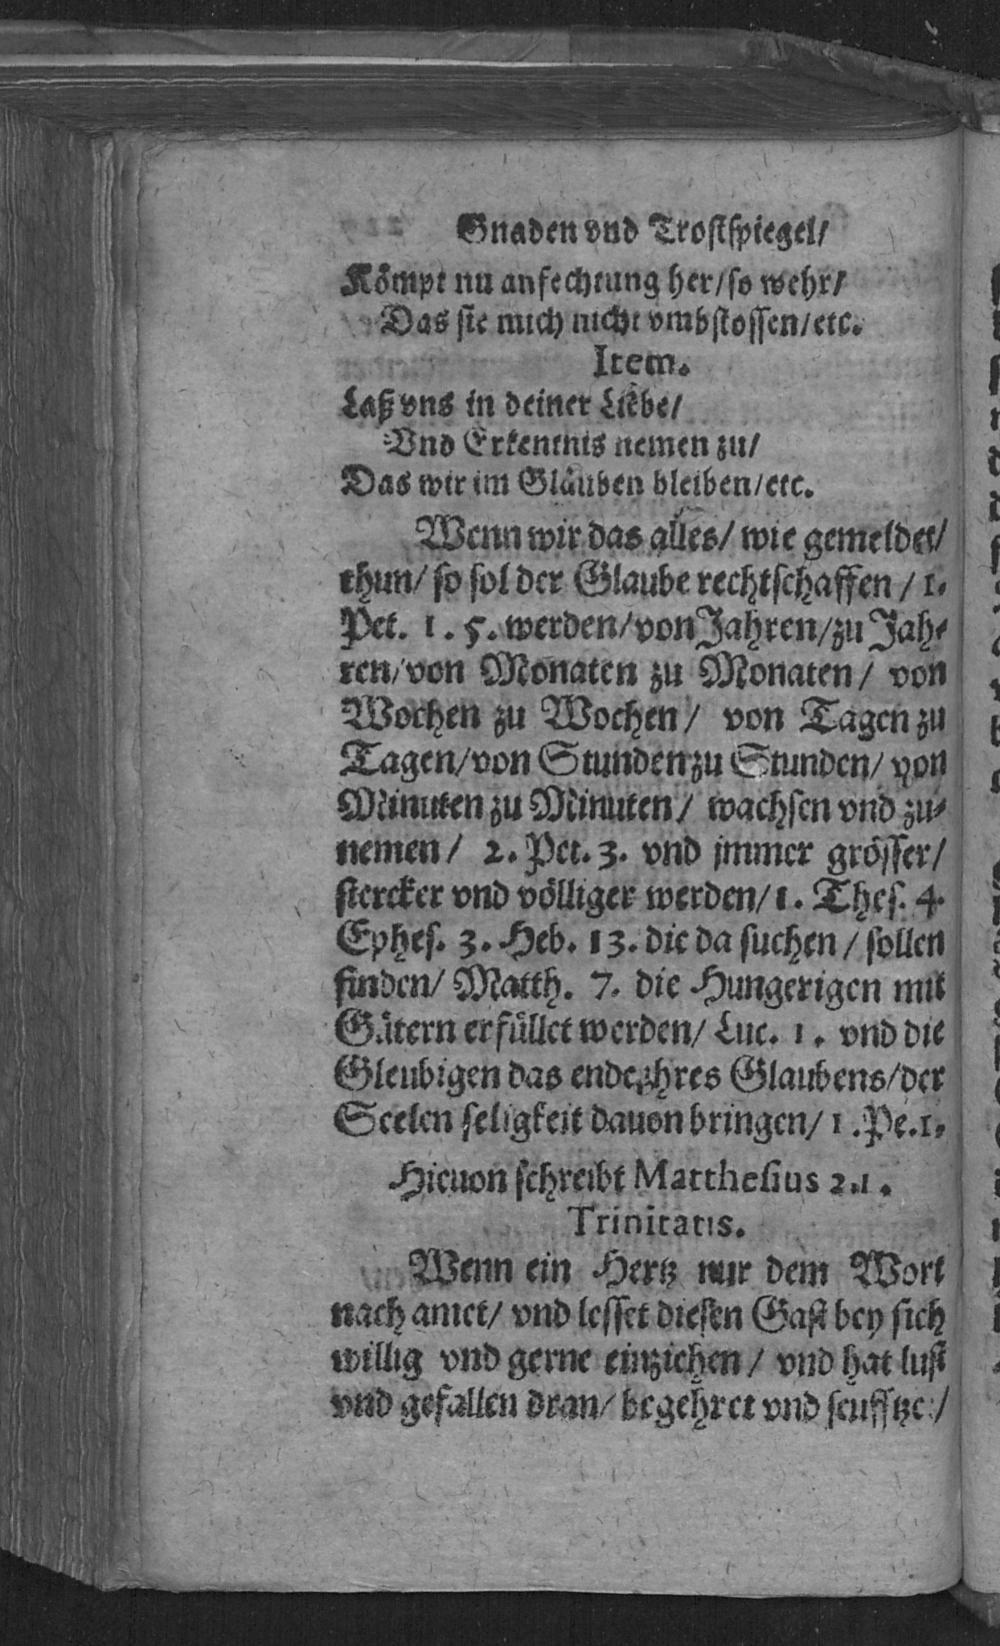 Gnaden vnd Trostspiegel/
Kömpt nu anfechtung her/so wehr/
Das sie mich nicht vmbstossen/etc.
Item.
Laß vns in deiner Liebe/
Vnd Erkentnis nemen zu/
Das wir im Glauben bleiben/etc.
Wenn wir das alles/ wie gemeldet/
thun/ so sol der Glaube rechtschaffen / 1.
Pet. 1. 5. werden/von Jahren/zu Jah-
ren/von Monaten zu Monaten/ von
Wochen zu Wochen/ von Tagen zu
Tagen/von Stunden zu Stunden/ von
Minuten zu Minuten/ wachsen vnd zu-
nemen/ 2. Pet. 3. vnd jmmer grösser/
stercker vnd völliger werden/1. Thes. 4.
Ephes. 3. Heb. 13. die da suchen / sollen
finden/ Matth. 7. die Hungerigen mit
Gütern erfüllet werden/ Luc. 1. vnd die
Gleubigen das ende jhres Glaubens/der
Seelen seligkeit dauon bringen/ 1. Pe.1.
Hieuon schreibt Matthesius 21.
Trinitatis.
Wenn ein Hertz nur dem Wort
nach amet/ vnd lesset diesen Gast bey sich
willig vnd gerne einziehen/ vnd hat lust
vnd gefallen dran/ begehret vnd seufftze/